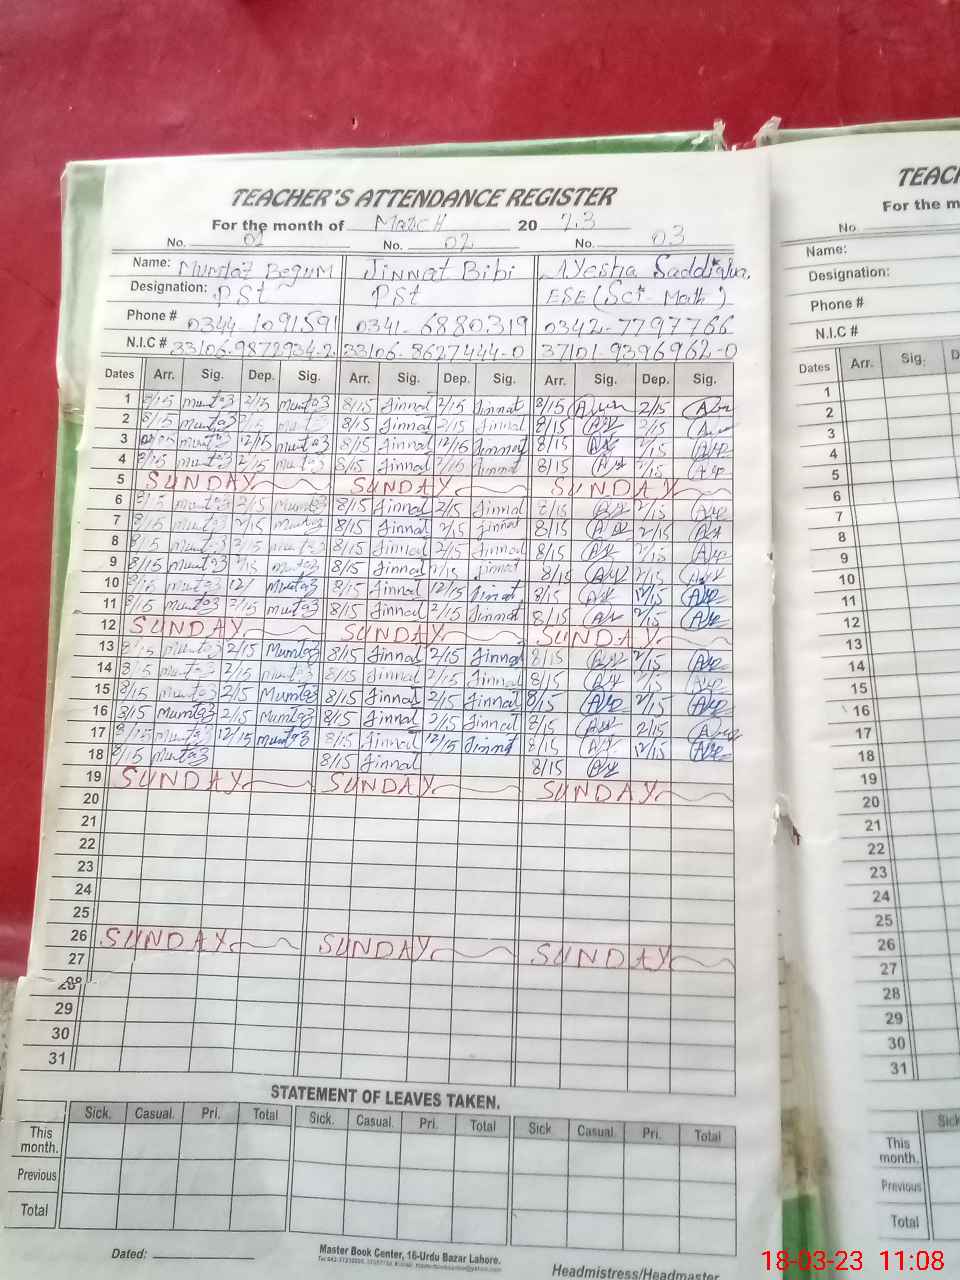 TEACHER'S ATTENDANCE REGISTER
For the month of MaRCH 20 23
No. 01 No. 02 No. 03
Name: Mumtaz Begum Jinnat Bibi Ayesha Saddiqua.
Designation: PSt PSt ESE (Sci-Math)
Phone # 0344 1091591 0341-6880319 0342-7797766
N.I.C # 33106-9872934-2 33106-8627444-0 37101-9396962-0
Dates Arr. Sig. Dep. Sig. Arr. Sig. Dep. Sig. Arr. Sig. Dep. Sig.
1 8/15 mumtaz 2/15 mumtaz 8/15 Jinnat 2/15 Jinnat 8/15 2/15
2 8/15 mumtaz 2/15 mumtaz 8/15 Jinnat 2/15 Jinnat 8/15 2/15
3 mumtaz 12/15 mumtaz 8/15 Jinnat 12/15 Jinnat 8/15
4 8/15 mumtaz 2/15 mumtaz 8/15 Jinnat 2/15 Jinnat 8/15 2/15
5 SUNDAY SUNDAY SUNDAY
6 8/15 mumtaz 2/15 mumtaz 8/15 Jinnat 2/15 Jinnat 8/15 2/15
7 8/15 mumtaz 2/15 mumtaz 8/15 Jinnat 2/15 Jinnat 8/15 2/15
8 8/15 mumtaz 2/15 mumtaz 8/15 Jinnat 2/15 Jinnat 8/15 2/15
9 8/15 mumtaz 2/15 mumtaz 8/15 Jinnat 2/15 Jinnat 8/15 2/15
10 8/15 mumtaz 12/ mumtaz 8/15 Jinnat 12/15 Jinnat 8/15 12/15
11 8/15 mumtaz 2/15 mumtaz 8/15 Jinnat 2/15 Jinnat 8/15 2/15
12 SUNDAY SUNDAY SUNDAY
13 8/15 mumtaz 2/15 Mumtaz 8/15 Jinnat 2/15 Jinnat 8/15 2/15
14 8/15 mumtaz 2/15 mumtaz 8/15 Jinnat 2/15 Jinnat 8/15 2/15
15 8/15 mumtaz 2/15 Mumtaz 8/15 Jinnat 2/15 Jinnat 8/15 2/15
16 8/15 Mumtaz 2/15 Mumtaz 8/15 Jinnat 2/15 Jinnat 8/15 2/15
17 8/15 Mumtaz 12/15 Mumtaz 8/15 Jinnat 12/15 Jinnat 8/15 12/15
18 8/15 mumtaz 8/15 Jinnat 8/15
19 SUNDAY SUNDAY SUNDAY
20
21
22
23
24
25
26 SUNDAY SUNDAY SUNDAY
27
28
29
30
31
STATEMENT OF LEAVES TAKEN.
Sick. Casual. Pri. Total Sick. Casual. Pri. Total Sick Casual. Pri. Total
This month.
Previous
Total
Dated:
Master Book Center, 16-Urdu Bazar Lahore.
Headmistress/Headmaster
TEACH
For the m
No
Name:
Designation:
Phone #
N.I.C #
Dates Arr. Sig. D
1
2
3
4
5
6
7
8
9
10
11
12
13
14
15
16
17
18
19
20
21
22
23
24
25
26
27
28
29
30
31
Sick
This month.
Previous
Total
18-03-23 11:08